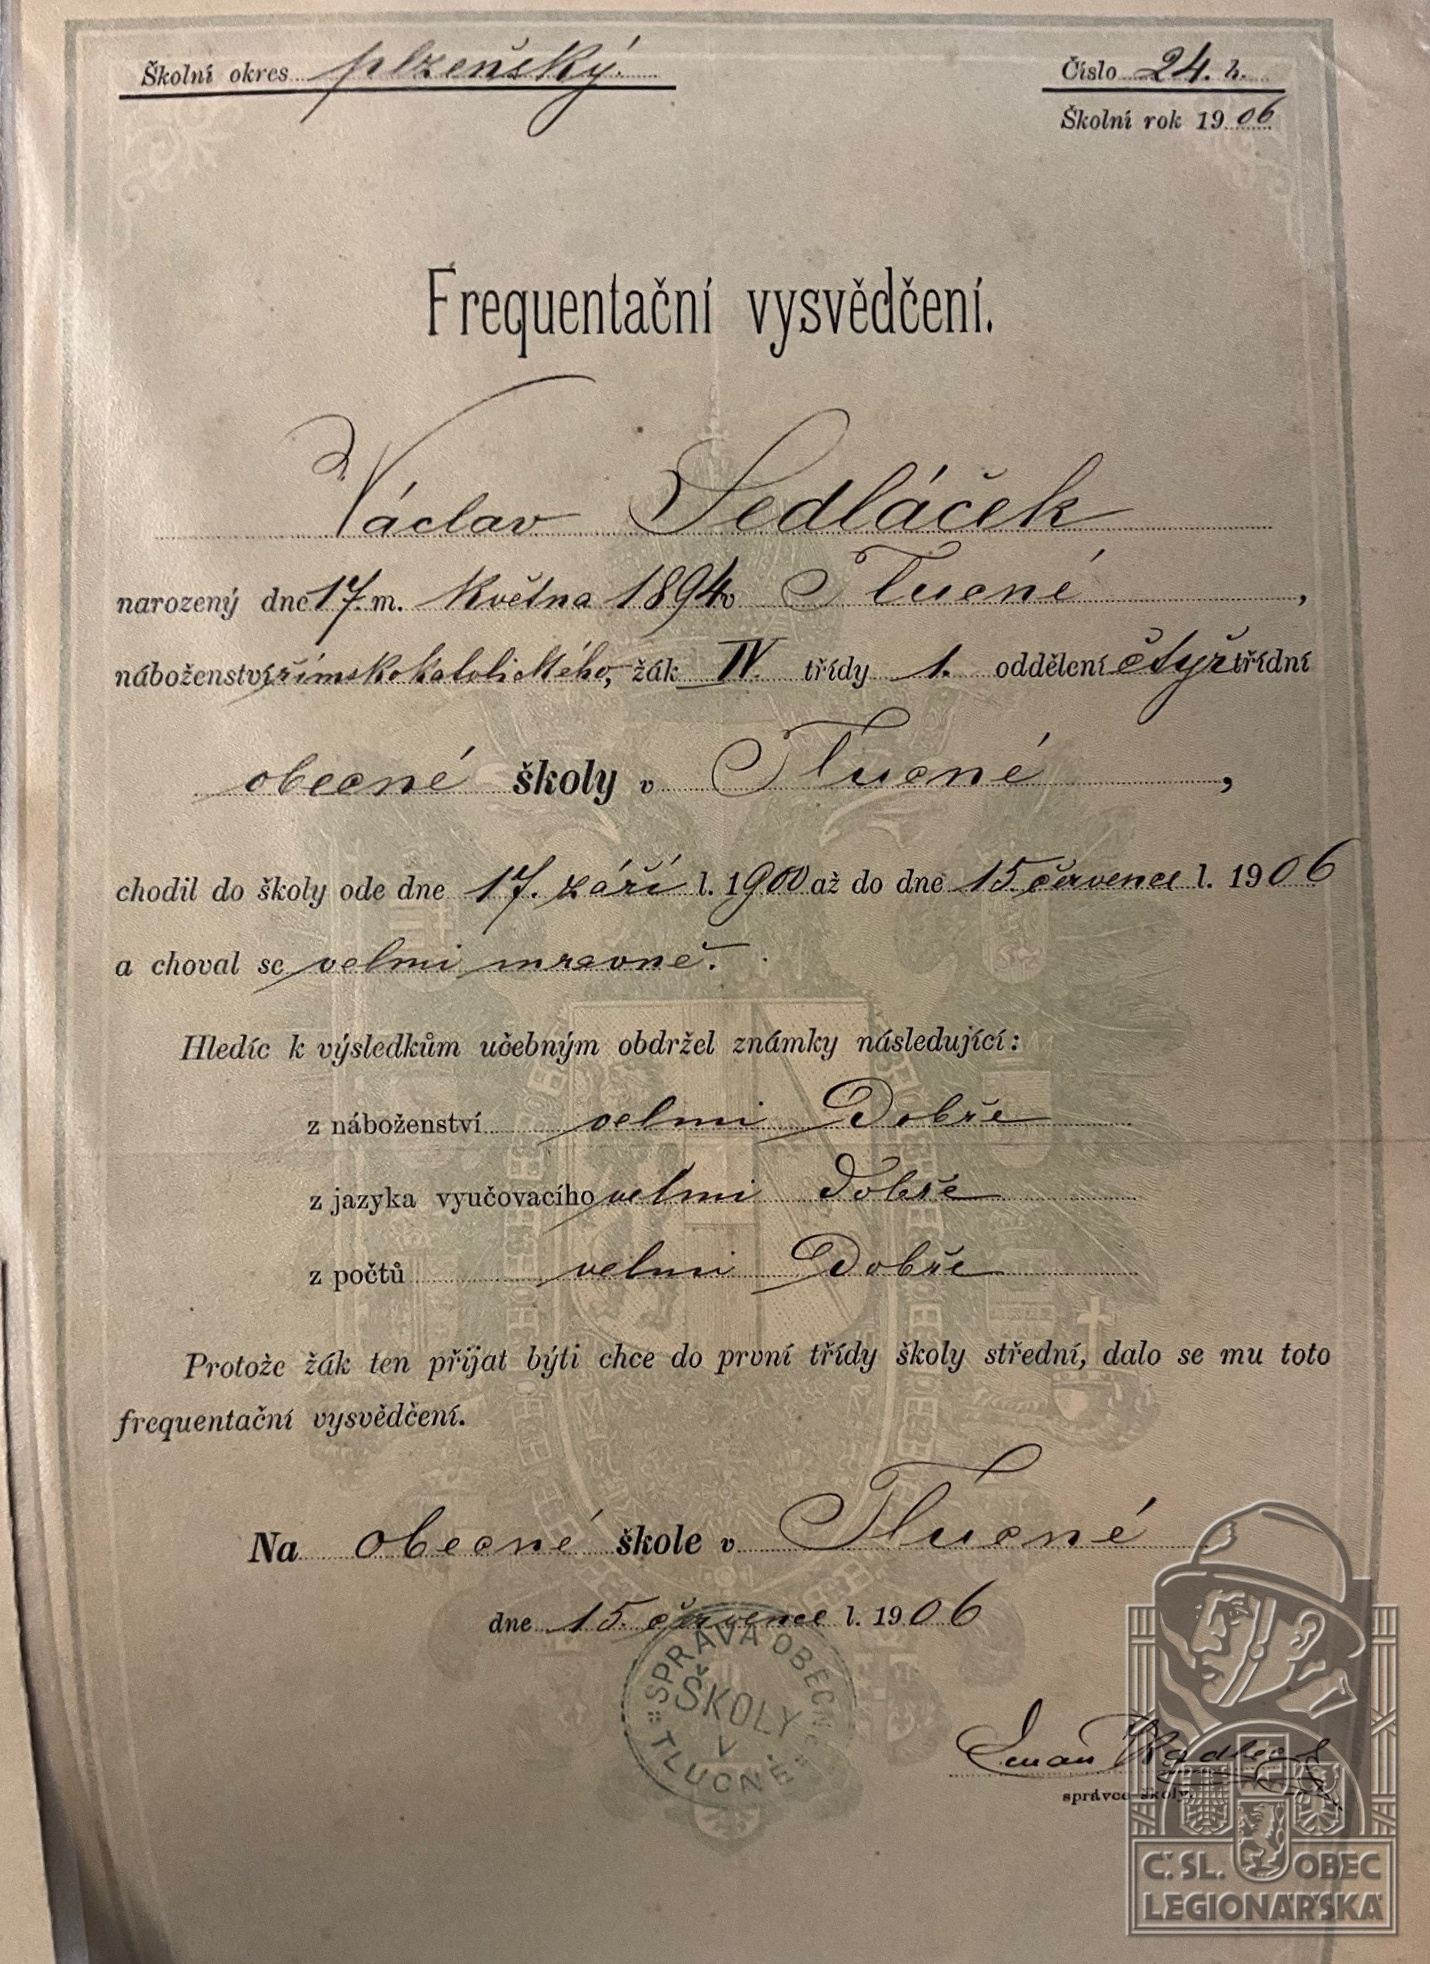 Školní okres plzeňský.
Číslo 24. h.
Školní rok 1906
Frequentační vysvědčení.
Václav Sedláček
narozený dne 17. m. května 1894 v Tlucné,
náboženství římskokatolického, žák IV. třídy 1. oddělení čtyřtřídní
obecné školy v Tlucné,
chodil do školy ode dne 17. září l. 1900 až do dne 15. července l. 1906
a choval se velmi mravně.
Hledíc k výsledkům učebným obdržel známky následující:
z náboženství velmi dobře
z jazyka vyučovacího velmi dobře
z počtů velmi dobře
Protože žák ten přijat býti chce do první třídy školy střední, dalo se mu toto
frequentační vysvědčení.
Na obecné škole v Tlucné
dne 15. července l. 1906
SPRÁVA OBECNÉ
ŠKOLY
V
TLUCNÉ
správce školy.
Č. SL. OBEC
LEGIONÁŘSKÁ